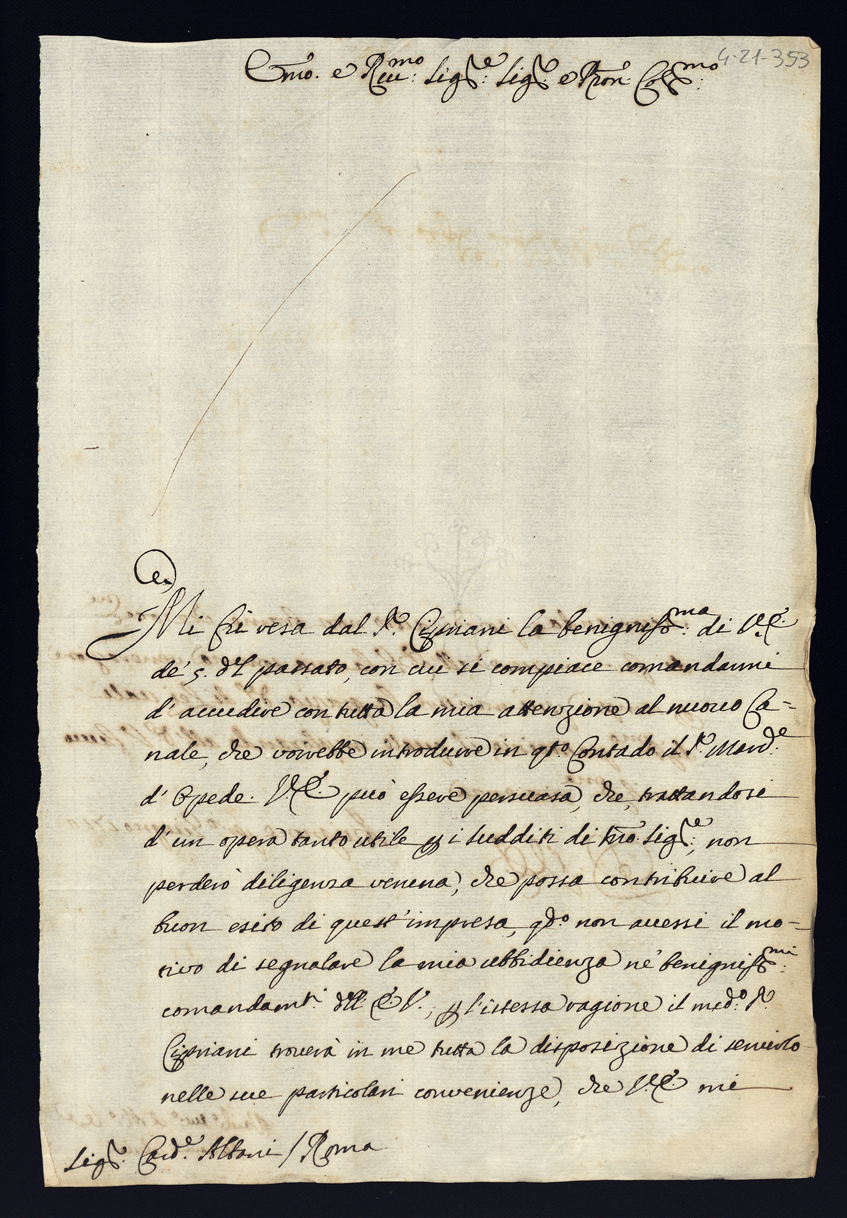 4-21-353
Emo. e Reu:mo Sig.re: Sig.re e Pron Colmo:
Mi fù resa dal Sr. Cipriani la benignissma: di V.E.
de' 5. del passato, con cui si compiace comandarmi
d'accudire con tutta la mia attenzione al nuovo Ca-
nale, che vorrebbe introdurre in qto. Contado il Sr. March.e
d'Opede. V.E. può essere persuasa, che, trattandosi
d'un opera tanto utile per i sudditi di Nro. Sig.re, non
perderò diligenza veruna, che possa contribuire al
buon esito di quest'impresa, qdo. non avessi il mo-
tivo di segnalare la mia ubbidienza ne' benignissmi:
comandamti. dell'E.V.; per l'istessa ragione il medo. Sr.
Cipriani troverà in me tutta la disposizione di servirlo
nelle sue particolari convenienze, che V.E. mi
Sigr. Card.e Albani / Roma